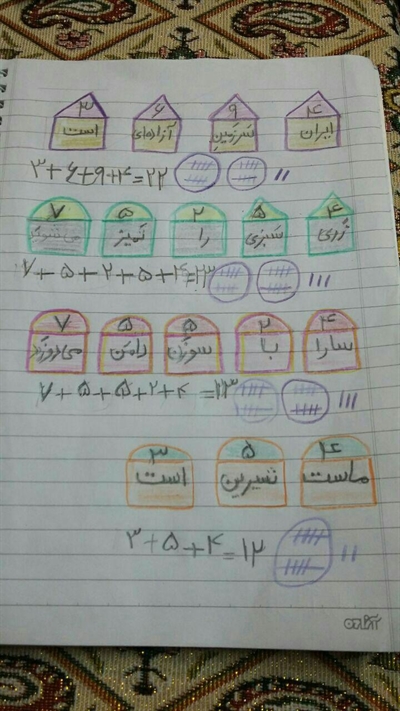 ۴ ۹ ۶ ۳
ایران سرزمین آزاده‌ای است
۳+۶+۹+۴=۲۲
۴ ۵ ۲ ۵ ۷
زری سبزی را تمیز می‌شوید
۷+۵+۲+۵+۴=۲۳
۴ ۲ ۵ ۵ ۷
سارا با سوزن دامن می‌دوزد
۷+۵+۵+۲+۴=۲۳
۴ ۵ ۳
ماست شیرین است
۳+۵+۴=۱۲